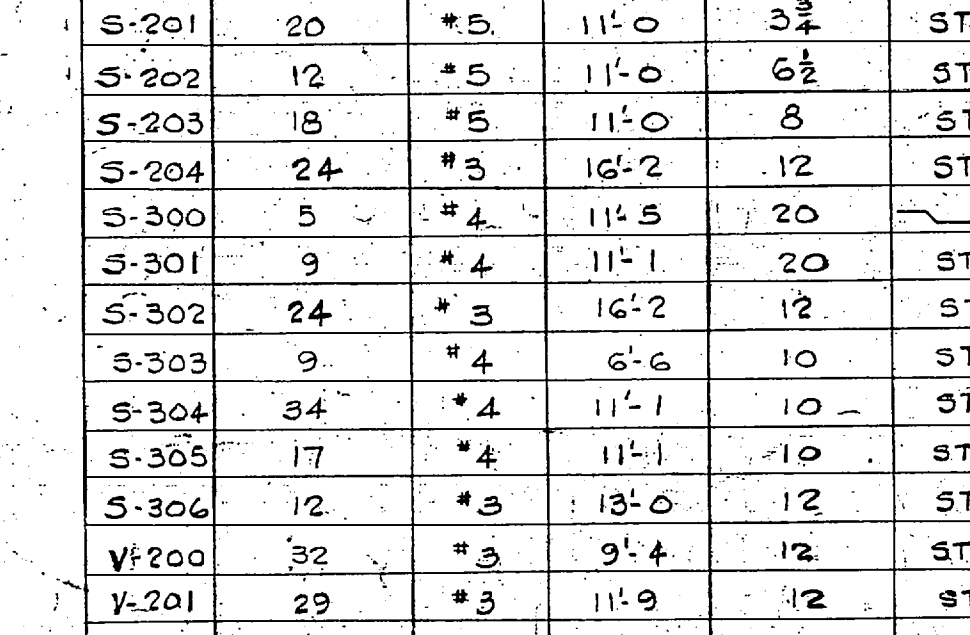 S-201 20 #5 11'-0 3 3/4 ST
S-202 12 #5 11'-0 6 1/2 ST
S-203 18 #5 11'-0 8 ST
S-204 24 #3 16'-2 12 ST
S-300 5 #4 11'-5 20
S-301 9 #4 11'-1 20 ST
S-302 24 #3 16'-2 12 ST
S-303 9 #4 6'-6 10 ST
S-304 34 #4 11'-1 10 ST
S-305 17 #4 11'-1 10 ST
S-306 12 #3 13'-0 12 ST
V-200 32 #3 9'-4 12 ST
V-201 29 #3 11'-9 12 ST